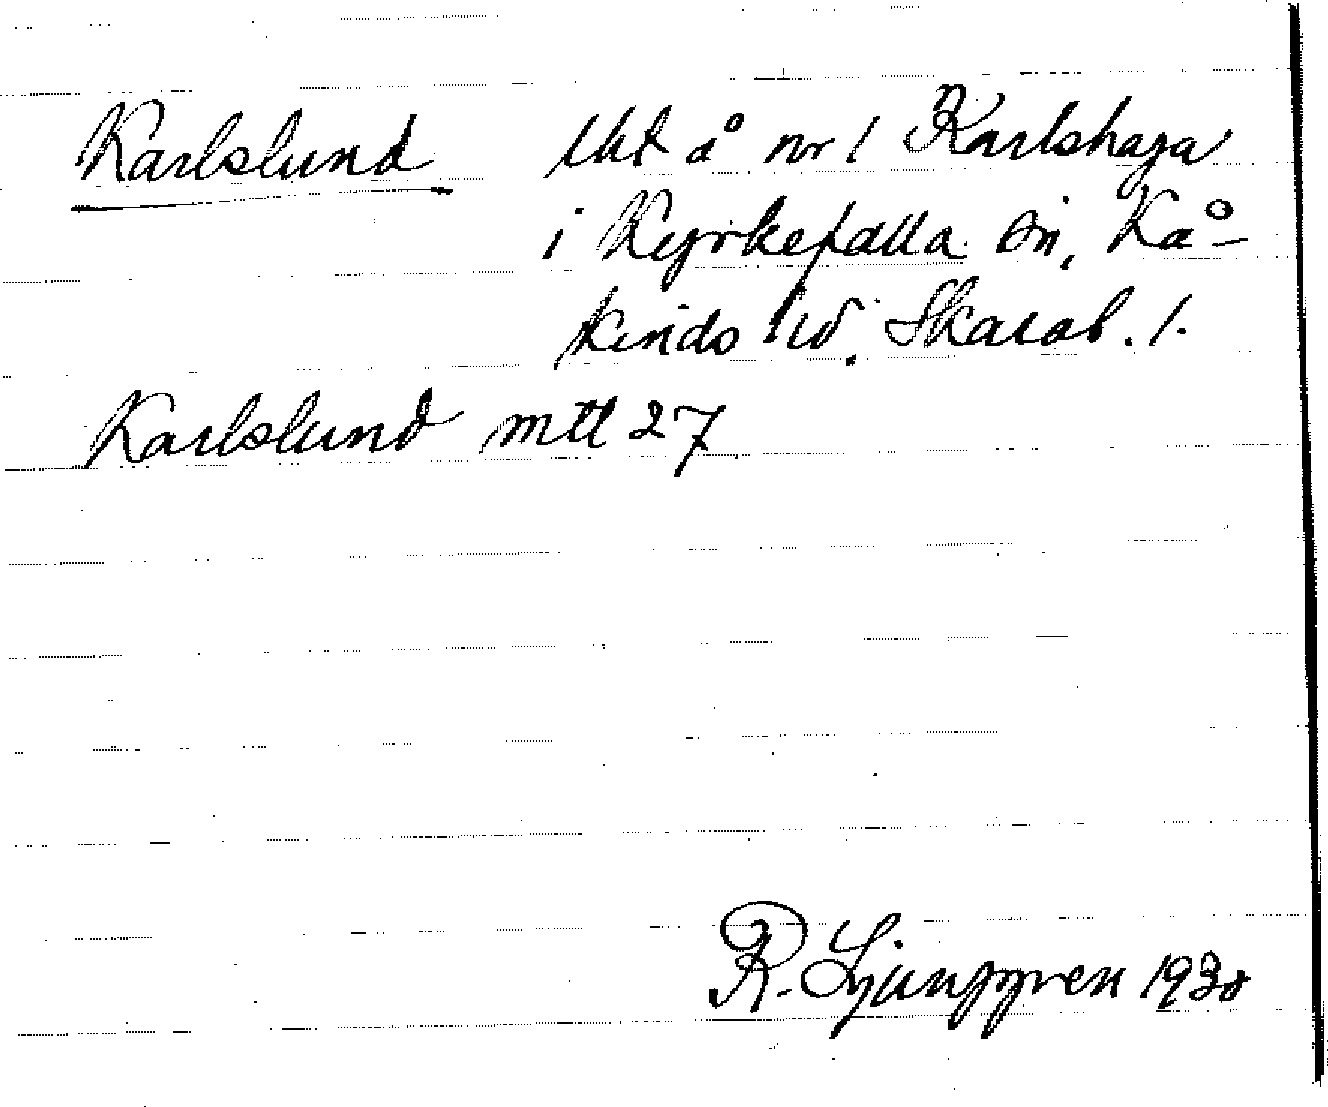 Karlslund lht å nr 1 Karlshaga
i Kyrkefalla sn, Kå-
kinds hd. Skarab. l.
Karlslund mtl 27
R. Ljunggren 1930